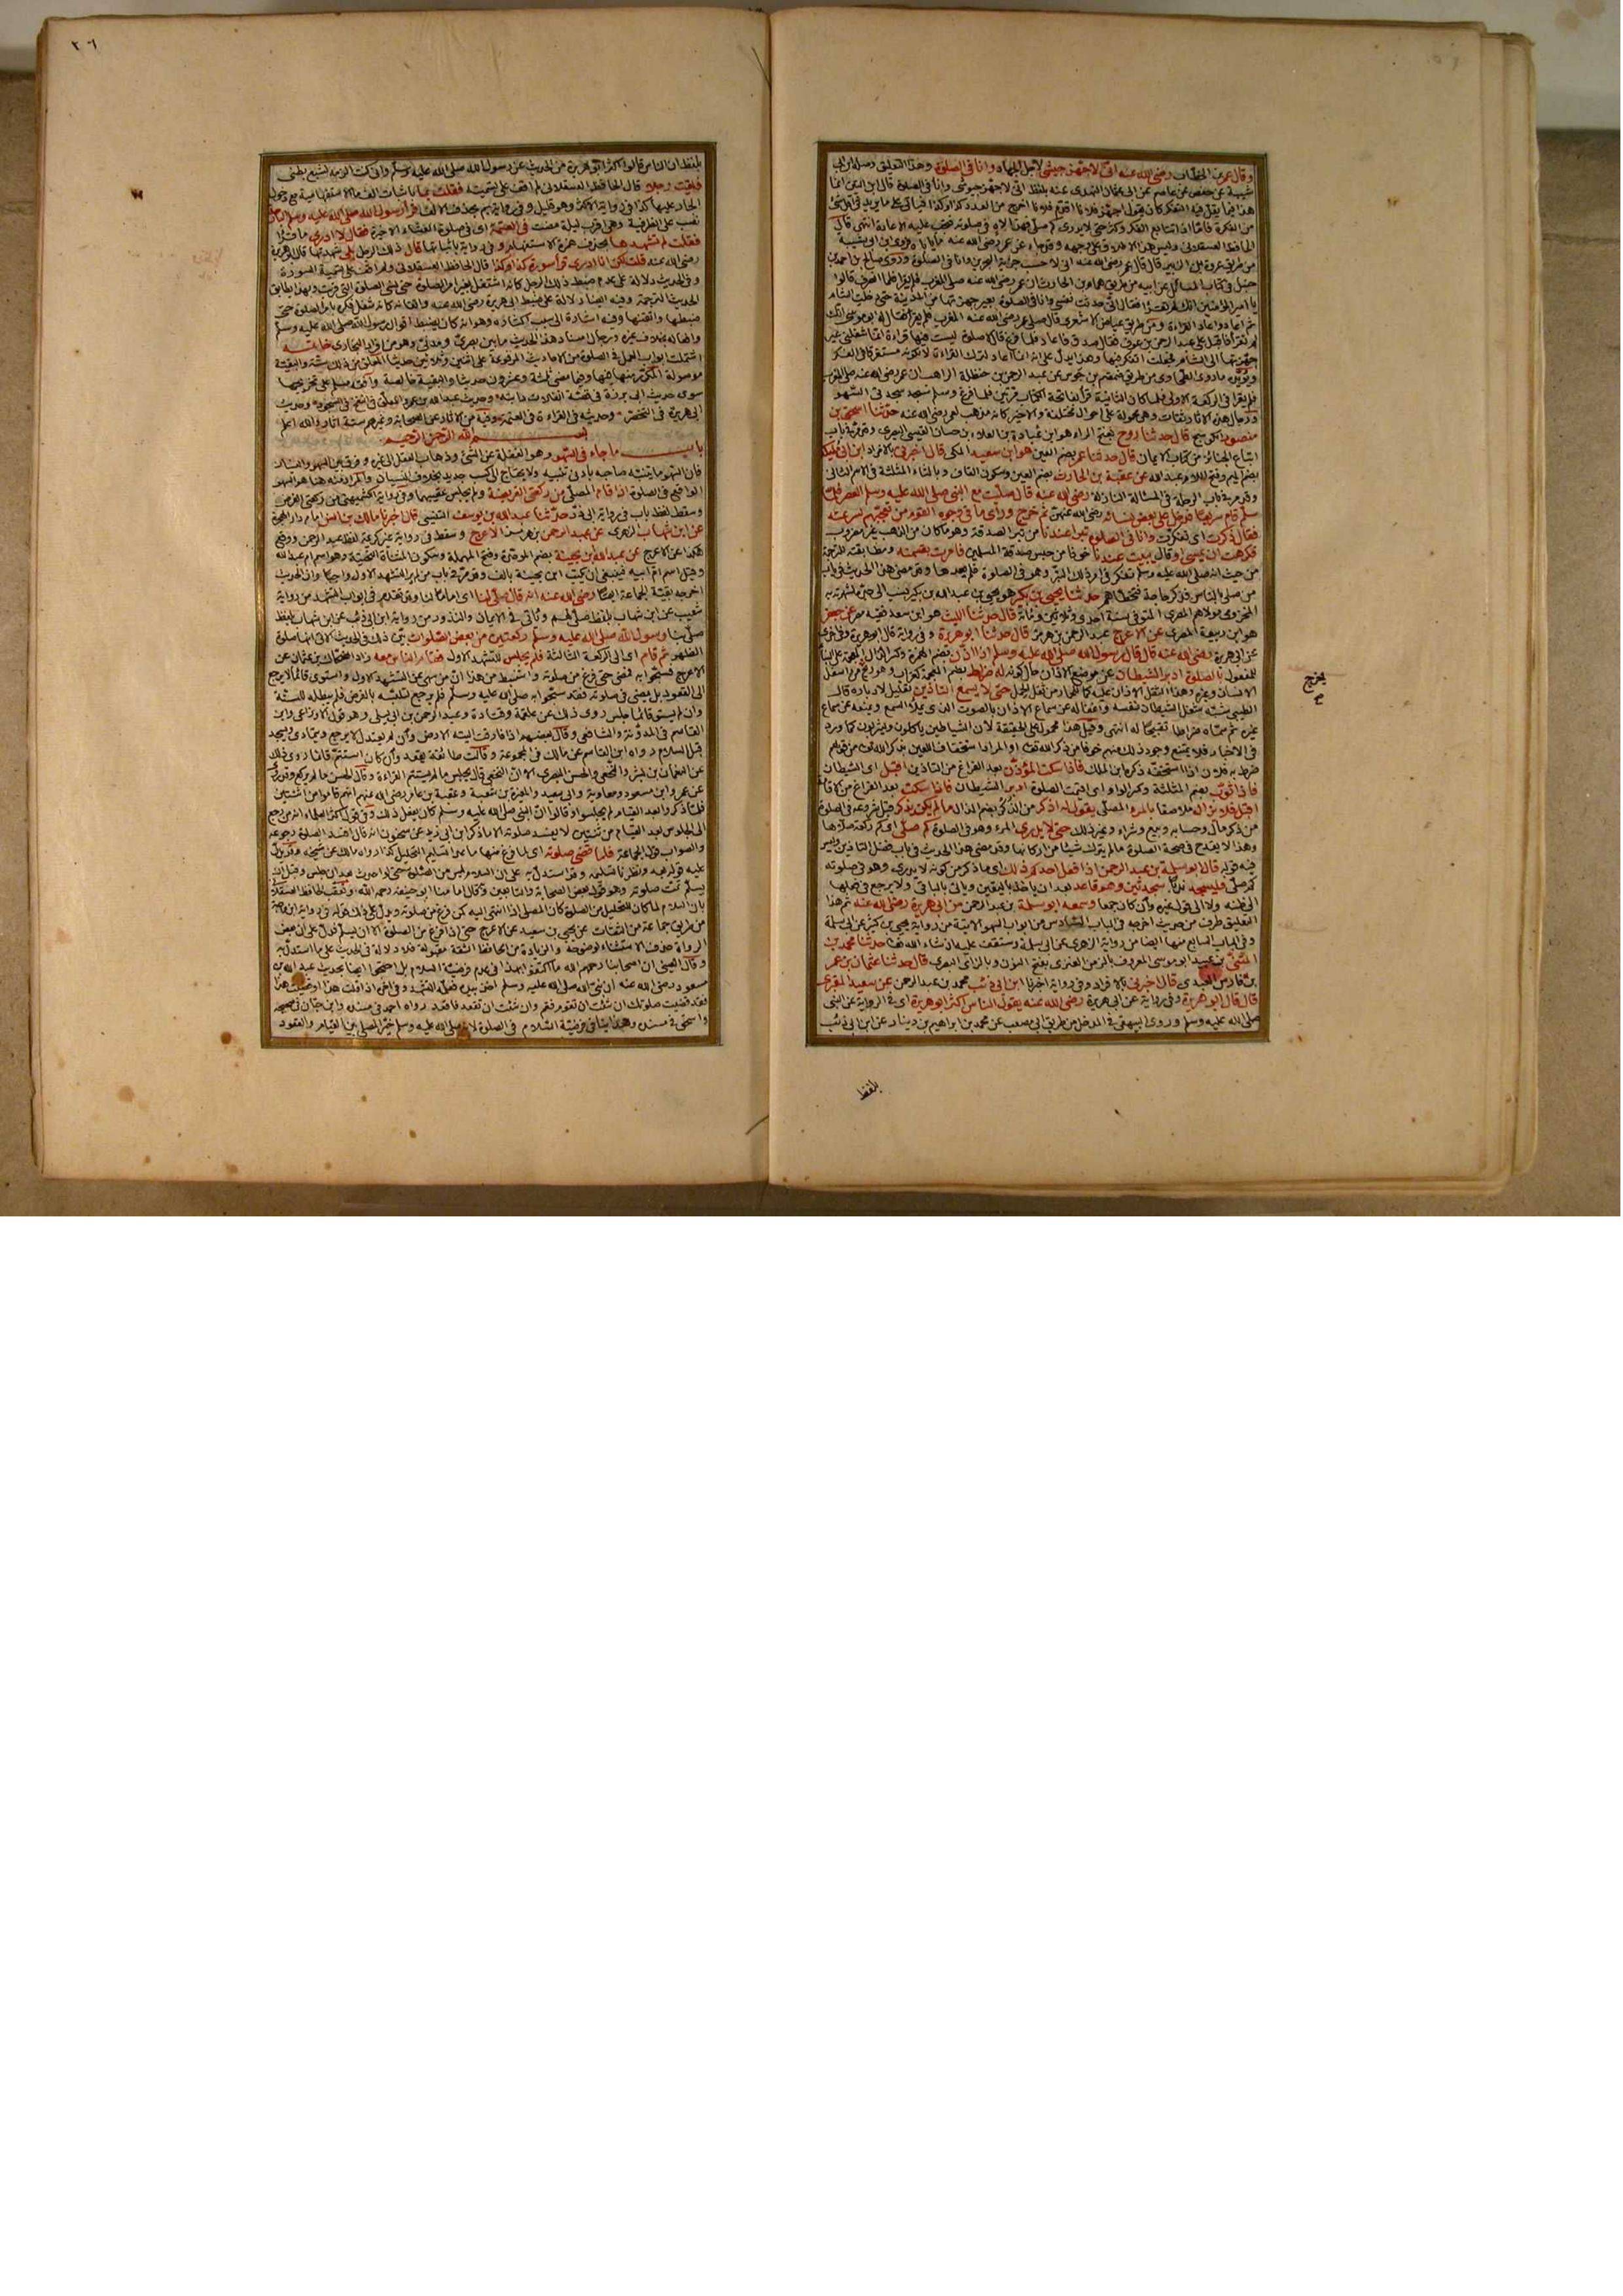 وقال عمر بن الخطاب رضى الله عنه انى لاجهز جيشى لاجل الجهاد وانا فى الصلوة وهذا التعليق وصله ابن ابى
شيبة عن حفص عن عاصم عن ابى عثمان النهدى عنه بلفظ انى لاجهز جيوشى وانا فى الصلاة قال ابن التين انما
هذا فيما يقل فيه التفكر كان يقول اجهز فلانا اقدم فلانا اخرج من العدد كذا وكذا فيأتى على ما يريد فى اقل شئ
من الفكرة فامّا اذا تتابع الفكر وكثر حتى لا يدرى كم صلّى فهذا لاه فى صلوته فيجب عليه الاعادة انتهى قال
الحافظ العسقلانى وليس هذا الاطلاق على وجهه وقد جاء عن عمر رضى الله عنه ما ياباه فروى ابن ابى شيبة
من طريق عروة بن الزبير قال قال عمر رضى الله عنه انى لاحسب جزية البحرين وانا فى الصلوة وروى صالح بن احمد بن
حنبل فى كتاب المسائل عن ابيه من طريق همام بن الحارث ان عمر رضى الله عنه صلى المغرب فلم يقرأ فلما انصرف قالوا
يا امير المؤمنين انك لم تقرأ فقال انى حدثت نفسى وانا فى الصلوة بعير جهزتها من المدينة حتى دخلت الشام
ثم اعاد واعاد القراءة ومن طريق عياض الاشعرى قال صلى عمر رضى الله عنه المغرب فلم يقرأ فقال له ابو موسى انك
لم تقرأ فاقبل على عبد الرحمن بن عوف فقال صدق فاعاد فلما فرغ قال لا صلوة ليست فيها قراءة انما شغلنى عير
جهزتها الى الشام فجعلت اتفكر فيها وهذا يدل على انه انما اعاد لترك القراءة لا لكونه مستغرقا فى الفكر
ويؤيّده ما روى الطحاوى من طريق ضمضم بن جوس عن عبد الرحمن بن حنظلة الراهب ان عمر رضى الله عنه صلى المغرب
فلم يقرأ فى الركعة الاولى فلما كان الثانية قرأ بفاتحة الكتاب مرّتين فلما فرغ وسلّم سجد سجدتى السّهو
ورجال هذه الآثار ثقات وهى محمولة على احوال مختلفة والاخير كانه مذهب لعمر رضى الله عنه حدّثنا اسحق بن
منصور الكوسج قال حدثنا روح بفتح الراء هو ابن عُبادة بن العلاء بن حسان القيسى البصرى وقد مرّ فى باب
اتباع الجنائز من كتاب الايمان قال حدثنا عمر بضم العين هو ابن سعيد المكى قال اخبرنى بالافراد ابن ابى مُليكة
بضم الميم وفتح اللام عبد الله عن عقبة بن الحارث بضم العين وسكون القاف وبالثاء المثلثة فى الاسم الثانى
وقد مر فى باب الرحلة فى المسألة النازلة رضى الله عنه قال صلّيت مع النبى صلى الله عليه وسلم العصر فلما
سلّم قام سريعًا دخل على بعض نسائه رضى الله عنهنّ ثم خرج ورأى ما فى وجوه القوم من تعجّبهم لسرعته
فقال ذكرت اى تفكرت وانا فى الصلوة تبرا عندنا من تبر الصدقة وهو ما كان من الذهب غير مضروب
فكرهت ان يمسى او قال يبيت عندنا خوفا من حبس صدقة المسلمين فامرت بقسمته ومطابقته للترجمة
من حيث انه صلى الله عليه وسلم تفكر فى امر ذلك التبر وهو فى الصلوة فلم يعدها وقد مضى هذا الحديث فى باب
من صلى بالناس فذكر حاجة فتخطاهم حدثنا يحيى بن بكير هو يحيى بن عبد الله بن بكير نسب الى جدّه لشهرته به
المخزومى مولاهم المصرى المتوفى سنة احدى وثلاثين ومائة قال حدثنا الليث هو ابن سعد فقيه مصر عن جعفر
هو ابن ربيعة المصرى عن الاعرج عبد الرحمن بن هرمز قال حدثنا ابو هريرة وفى رواية قال ابو هريرة وفى اخرى
عن ابى هريرة رضى الله عنه قال قال رسول الله صلى الله عليه وسلم اذا اذّن بضم الهمزة وكسر الذال المعجمة على البناء
للمفعول بالصلوة ادبر الشيطان عن موضع الاذان حال كونه له ضراط بضم المعجمة كغراب وهو ريح من اسفل
الانسان وغيره وهذا لثقل الاذان عليه كما للحمار من ثقل الحمل حتى لا يسمع التاذين تعليل لادباره قال
الطيبى شبّه شغل الشيطان نفسه واغفاله عن سماع الاذان بالصوت الذى يملأ السمع ويمنعه عن سماع
غيره ثم سمّاه ضراطا تقبيحًا له انتهى وقيل هذا محمول على الحقيقة لان الشياطين ياكلون ويشربون كما ورد
فى الاخبار فلا يمتنع وجود ذلك منهم خوفا من ذكر الله تعالى او المراد استخفاف اللعين بذكر الله تعالى من قولهم
ضرط به فلان اذا استخفّه ذكره ابن الملك فاذا سكت المؤذّن بعد الفراغ من التاذين اقبل اى الشيطان
فاذا ثوّب بضم المثلثة وكسر الواو اى اقيمت الصلوة ادبر الشيطان فاذا سكت بعد الفراغ من الاقامة
اقبل فلا يزال ملاصقا بالمرء المصلّى يقول له اذكر من الذكر بضم الذال ما لم يكن يذكر قبل شروعه فى الصلوة
من ذكر مال وحساب وبيع وشراء وغير ذلك حتى لا يدرى المرء وهو فى الصلوة كم صلّى اى كم ركعة صلّاها
وهذا لا يقدح فى صحة الصلوة ما لم يترك شيئا من اركانها وقد مضى هذا الحديث فى باب فضل التاذين وليس
فيه قوله قال ابو سلمة بن عبد الرحمن اذا فعل احدكم ذلك اى ما ذكر من كونه لا يدرى وهو فى صلوته
كم صلّى فليسجد ندبًا سجدتين وهو قاعد بعد ان ياخذ باليقين وياتى بالباقى ولا يرجع فى فعلها
الى ظنه ولا الى قول غيره وان كان جمعا وسمعه ابو سلمة بن عبد الرحمن من ابى هريرة رضى الله عنه ثم هذا
التعليق طرف من حديث اخرجه فى الباب السّادس من ابواب السهو الآتية من رواية يحيى بن كثير عن ابى سلمة
وفى الباب السابع منها ايضا من رواية الزهرى عن ابى سلمة وستقف عليه ان شاء الله تعالى حدثنا محمد بن
المثنّى بن عبيد ابو موسى المعروف بالزمن العنزى بفتح النون وبالزاى البصرى قال حدثنا عثمان بن عمر
بن فارس العبدى قال اخبرنى بالافراد وفى رواية اخبرنا ابن ابى ذئب محمد بن عبد الرحمن عن سعيد المقبرى
قال قال ابو هريرة وفى رواية عن ابى هريرة رضى الله عنه يقول الناس اكثر ابو هريرة اى فى الرواية عن النبى
صلى الله عليه وسلم وروى البيهقى فى المدخل من طريق ابى مصعب عن محمد بن ابراهيم بن دينار عن ابن ابى ذئب
يخرج
بلفظ
٢٠٦
بلفظ ان الناس قالوا اكثر ابو هريرة من الحديث عن رسول الله صلى الله عليه وسلم وانى كنت الزمه لشبع بطنى
فلقيت رجلا قال الحافظ العسقلانى لم اقف على تسميته فقلت بما باثبات الف ما الاستفهامية مع دخول
الجار عليها كذا فى رواية الاكثر وهو قليل وفى رواية بم بحذف الالف قرأ رسول الله صلى الله عليه وسلم البارحة
نصب على الظرفية وهى اقرب ليلة مضت فى العتمة اى فى صلوة العشاء الاخيرة فقال لا ادرى ما قرأ
فقلت لم تشهدها بحذف همزة الاستفهام وفى رواية باثباتها قال ذلك الرجل بلى شهدتها قال ابو هريرة
رضى الله عنه قلت لكن انا ادرى قرأ سورة كذا وكذا قال الحافظ العسقلانى ولم اقف على تسمية السورة
وفى الحديث دلالة على عدم ضبط ذلك الرجل كانه اشتغل بغير امر الصلوة حتى نسى الصلوة التى قرئت وبهذا يطابق
الحديث الترجمة وفيه ايضا دلالة على ضبط ابى هريرة رضى الله عنه واتقانه كانه شغل فكره بامر الصلوة حتى
ضبطها واتقنها وفيه اشارة الى سبب اكثاره وهو انه كان يضبط اقوال رسول الله صلى الله عليه وسلم
وافعاله بخلاف غيره ورجال اسناد هذا الحديث ما بين بصرى ومدنى وهو من افراد البخارى خاتمـــه
اشتملت ابواب العمل فى الصلوة من الاحاديث المرفوعة على اثنين وثلاثين حديثا المعلق من ذلك ستة والبقيّة
موصولة المكرّر منها فيها وفيما مضى ثلثة وعشرون حديثا والبقية خالصة وافقه مسلم على تخريجها
سوى حديث ابى برزة فى قصّة انفلات دابّته وحديث عبد الله بن عمرو المعلّق فى النفخ فى السّجود وحديث
ابى هريرة فى التخصّر وحديثه فى القراءة فى العتمة وفيه من الآثار عن الصحابة وغيرهم ستة اثار والله اعلم
بســـــم الله الرّحمن الرّحيـــم
بابـــ ما جاء فى السّهو وهو الغفلة عن الشئ وذهاب القلب الى غيره وفرق بين السهو والنسيان
فان السّهو ما يتنبّه صاحبه بادنى تنبيه ولا يحتاج الى كسب جديد بخلاف النسيان والمراد منه هنا هو السّهو
الواقع فى الصلوة اذا قام المصلّى من ركعتى الفريضة ولم يجلس عقيبها وفى رواية الكشميهنى من ركعتى الفرض
وسقط لفظ باب فى رواية ابى ذرّ حدّثنا عبد الله بن يوسف التنيسى قال اخبرنا مالك بن انس امام دار الهجرة
عن ابن شهاب الزهرى عن عبد الرحمن بن هرمز الاعرج وسقط فى رواية غير كريمة لفظ عبد الرحمن ووقع
هكذا عن الاعرج عن عبد الله ابن بحينة بضم الموحّدة وفتح المهملة وسكون المثنّاة التحتيّة وهو اسم ام عبد الله
وقيل اسم امّ ابيه فينبغى ان يكتب ابن بحينة بالف وقد مرّ فى باب من لم ير التشهد الاول واجبًا وان الحديث
اخرجه بقيّة الجماعة ايضًا رضى الله عنه انّه قال صلّى لنا اى اماما لنا وقد تقدم فى ابواب التشهّد من رواية
شعيب عن ابن شهاب بلفظ صلّى بهم وتأتى فى الايمان والنذور من رواية ابن ابى ذئب عن ابن شهاب بلفظ
صلّى بنا رسول الله صلى الله عليه وسلم ركعتين من بعض الصّلوات بيّن ذلك فى الحديث الآتى انها صلوة
الظهر ثم قام اى الى الركعة الثالثة فلم يجلس للتشهد الاول فقام النّاس معه زاد الضحّاك بن عثمان عن
الاعرج فسبّحوا به فمضى حتى فرغ من صلوته واستنبط من هذا انّ من سهى عن التشهد الاول واستوى قائما لا يرجع
الى القعود بل يمضى فى صلوته فقد سبّحوا به صلى الله عليه وسلم فلم يرجع لتلبّسه بالفرض فلم يبطله للسنّة
وان لم يستو قائما جلس روى ذلك عن علقمة وقتادة وعبد الرحمن بن ابى ليلى وهو قول الاوزاعى وابن
القاسم فى المدوّنة والشافعى وقال بعضهم اذا فارقت اليته الارض وان لم يعتدل لا يرجع ويتمادى ويسجد
قبل السلام رواه ابن القاسم عن مالك فى المجموعة وقالت طائفة يقعد وان كان استتمّ قائما روى ذلك
عن النعمان بن بشير والنخعى والحسن البصرى الا ان النخعى قال يجلس ما لم يستتم القراءة وقال الحسن ما لم يركع وقد روى
عن عمر وابن مسعود ومعاوية وابى سعيد والمغيرة بن شعبة وعقبة بن عامر رضى الله عنهم انهم قاموا من اثنتين
فلمّا ذكروا بعد القيام لم يجلسوا وقالوا انّ النبى صلى الله عليه وسلم كان يفعل ذلك وفى قول اكثر العلماء انه من رجع
الى الجلوس بعد القيام من ثنتين لا يفسد صلوته الا ما ذكر ابن ابى زيد عن سحنون انه قال افسد الصلوة رجوعه
والصواب قول الجماعة فلما قضى صلوته اى لما فرغ منها ما عدا تسليم التحليل كذا رواه مالك عن شيخه ويدلّ
عليه قوله بعد ونظرنا تسليمه وقد استدلّ به على ان السلام ليس من الصلوة حتى لو احدث بعد ان جلس وقبل ان
يسلّم تمّت صلوته وهو قول بعض الصّحابة والتابعين وبه قال امامنا ابو حنيفة رحمه الله وتعقّب الحافظ العسقلانى
بان السلام لما كان للتحليل من الصلوة كان المصلى اذا انتهى اليه كمن فرغ من صلوته ويدلّ على ذلك قوله فى رواية ابن ماجة
من طريق جماعة من الثقات عن يحيى بن سعيد عن الاعرج حتى اذا فرغ من الصلوة الا ان يسلّم فدلّ على ان بعض
الرواة حذف الاستثناء لوضوحه والزيادة من الحافظ الثقة مقبولة فلا دلالة فى الحديث على ما استدلّ به
وقال العينى ان اصحابنا رحمهم الله ما اكتفوا بهذا فى عدم فرضيّة السلام بل احتجّوا ايضا بحديث عبد الله بن
مسعود رضى الله عنه ان نبىّ الله صلى الله عليه وسلم اخذ بيده فعلّمه التشهّد وفى آخره اذا قلت هذا او قضيت هذا
فقد قضيت صلوتك ان شئت ان تقوم فقم وان شئت ان تقعد فاقعد رواه احمد فى مسنده وابن حبّان فى صحيحه
واسحق فى مسنده وهذا ينافى فرضيّة السّلام فى الصلوة لانه صلى الله عليه وسلم خيّر المصلى بين القيام والقعود